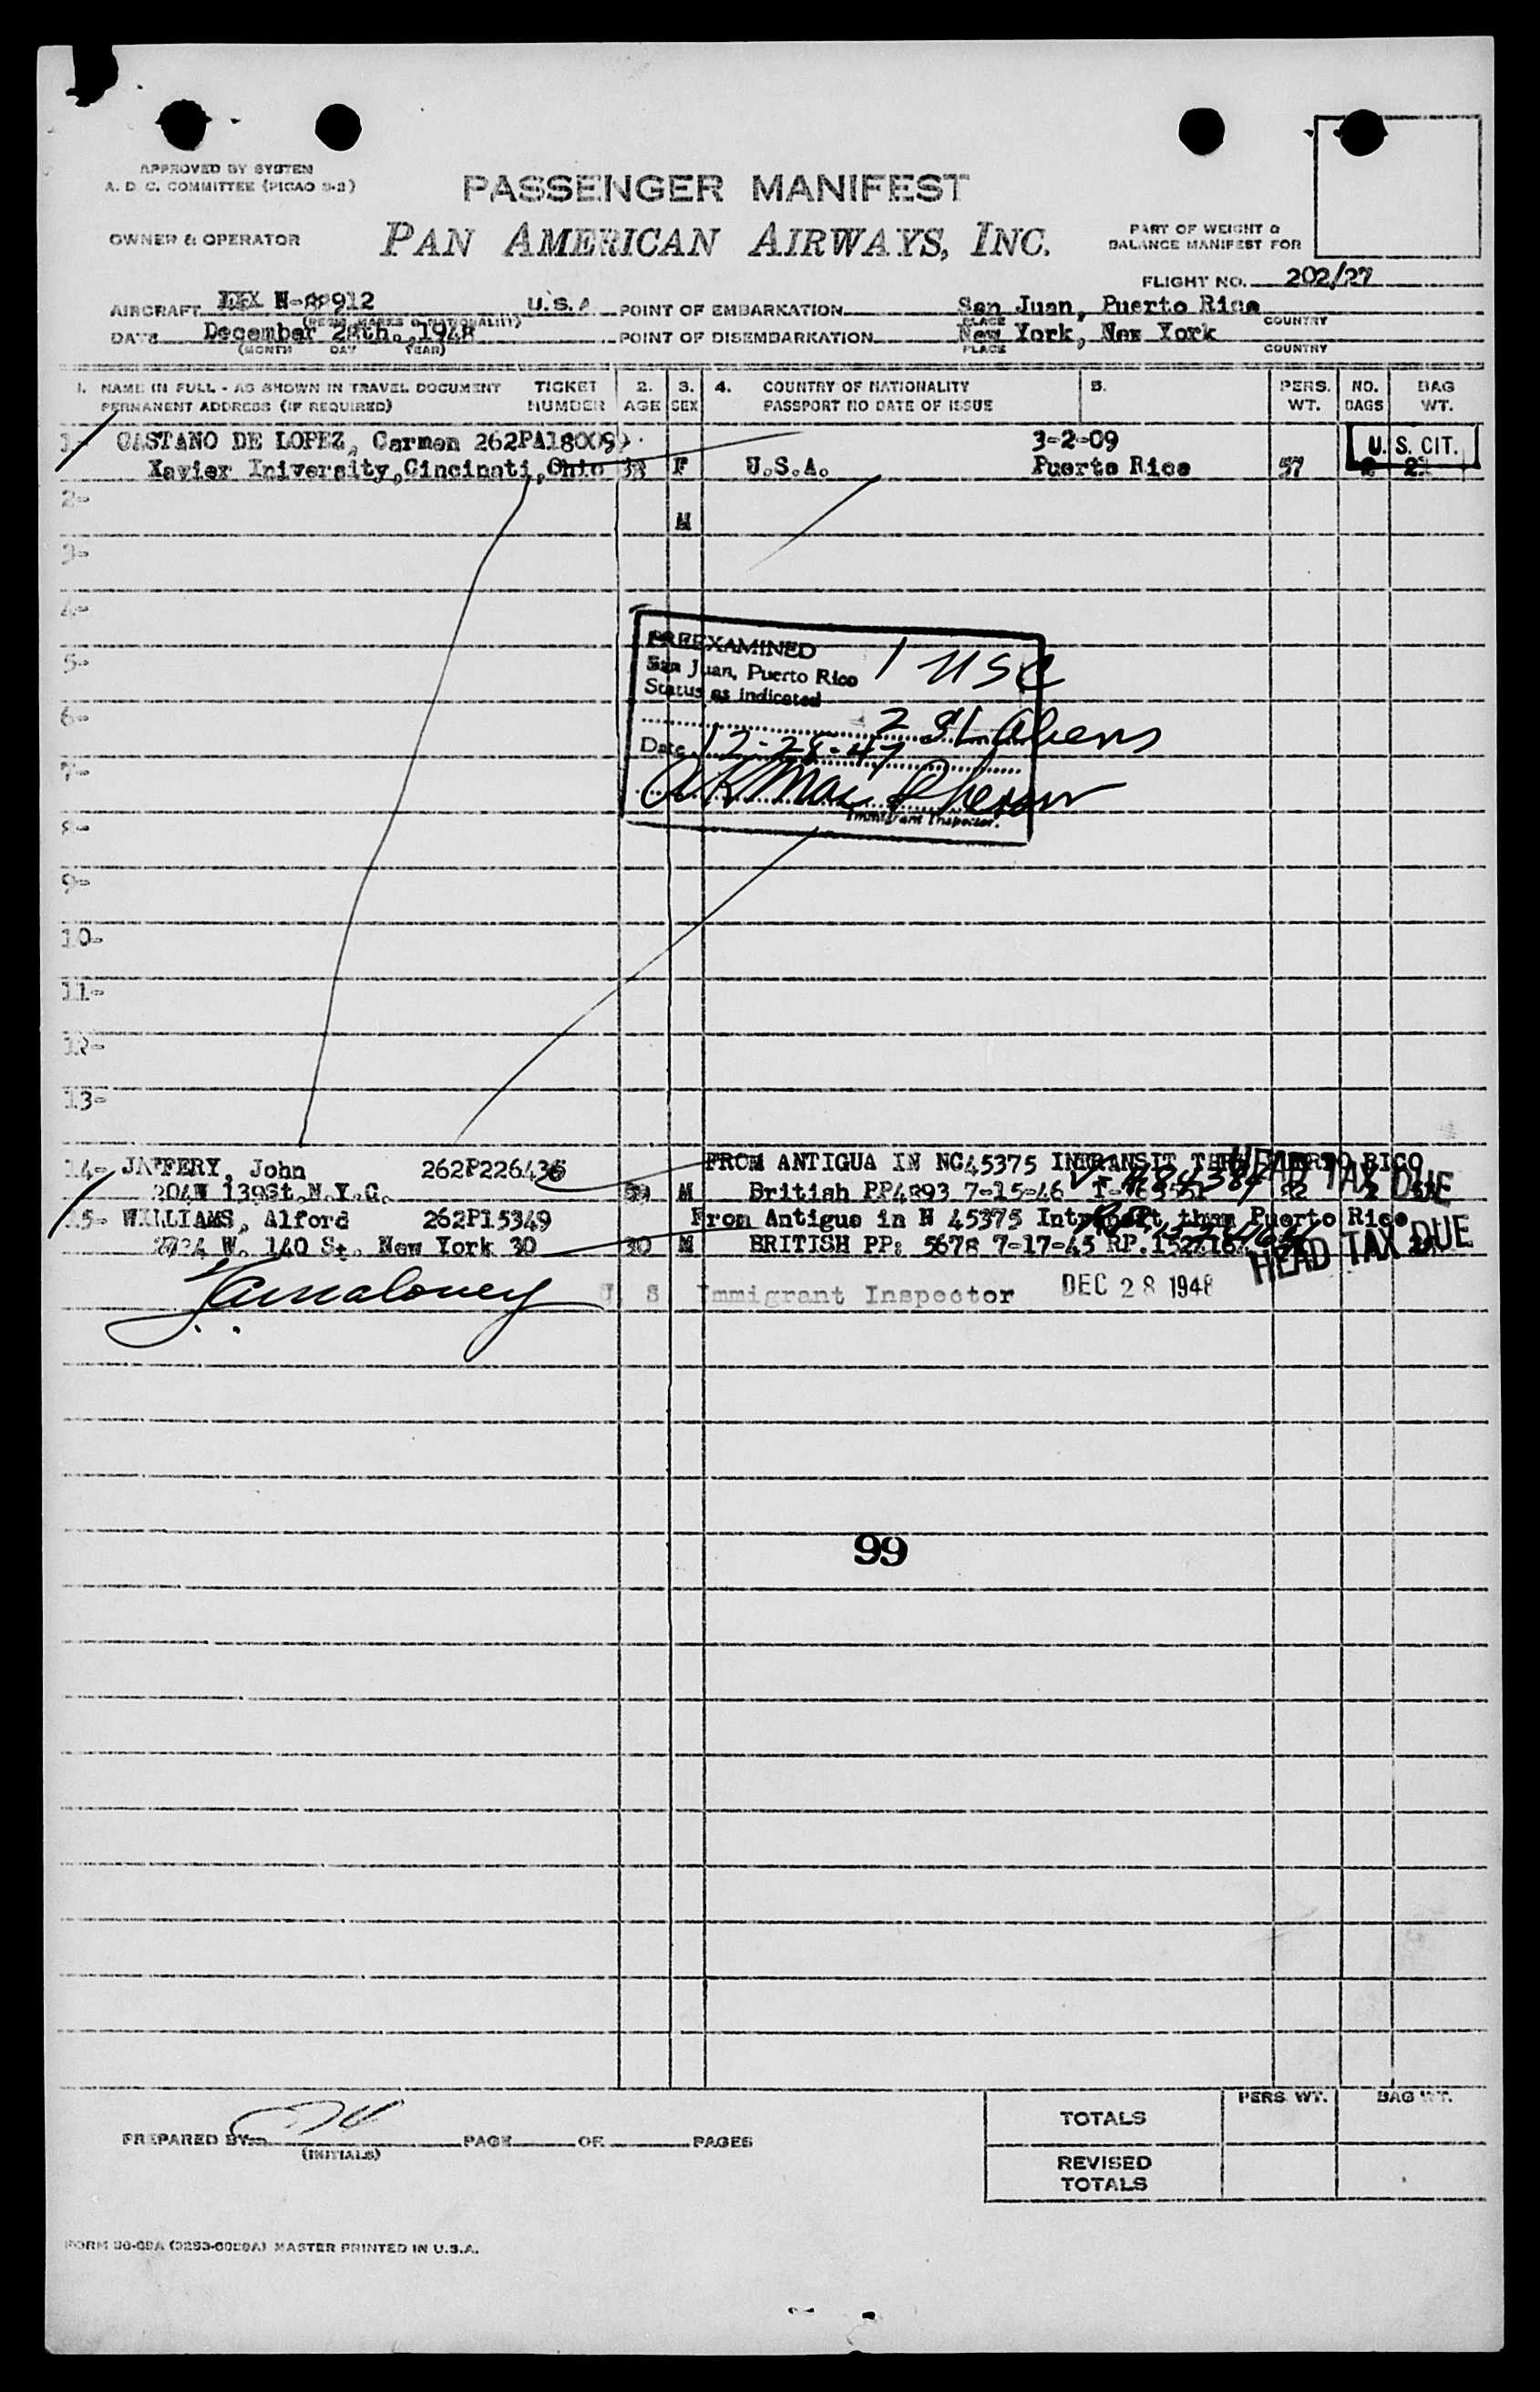 APPROVED BY SYSTEM
A. D. C. COMMITTEE (PICAO S-2)
PASSENGER MANIFEST
OWNER & OPERATOR
PAN AMERICAN AIRWAYS, INC.
PART OF WEIGHT &
BALANCE MANIFEST FOR
FLIGHT NO. 202/27
AIRCRAFT N-88912 U.S.A POINT OF EMBARKATION San Juan, Puerto Rico
(REGIS. MARKS & NATIONALITY) PLACE COUNTRY
DATE December 28th.,1948 POINT OF DISEMBARKATION New York, New York
(MONTH DAY YEAR) PLACE COUNTRY
1. NAME IN FULL - AS SHOWN IN TRAVEL DOCUMENT TICKET 2. 3. 4. COUNTRY OF NATIONALITY 5. PERS. NO. BAG
PERMANENT ADDRESS (IF REQUIRED) NUMBER AGE SEX PASSPORT NO DATE OF ISSUE WT. BAGS WT.
1- CASTANO DE LOPEZ, Carmen 262PA18009 3-2-09 U.S. CIT.
Xavier Iniversity,Cincinati,Ohio F U.S.A. Puerto Rico 57
2-
M
3-
4-
5-
6-
7-
8-
9-
10-
11-
12-
13-
PREEXAMINED
San Juan, Puerto Rico 1 USC
Status as indicated
2 SL Aliens
Date 12-28-47
Immigrant Inspector.
14- JAFFERY, John 262P226436 FROM ANTIGUA IN NC45375 INTRANSIT THRU PUERTO RICO
HEAD TAX DUE
204W 139St.N.Y.C. 59 M British PP4893 7-15-46
15- WILLIAMS, Alford 262P15349 From Antigua in N 45375 Intransit thru Puerto Rico
W. 140 St. New York 30 30 M BRITISH PP: 5678 7-17-45 RP.
HEAD TAX DUE
U S Immigrant Inspector DEC 28 1948
99
PREPARED BY PAGE OF PAGES
(INITIALS)
PERS. WT. BAG WT.
TOTALS
REVISED
TOTALS
MASTER PRINTED IN U.S.A.